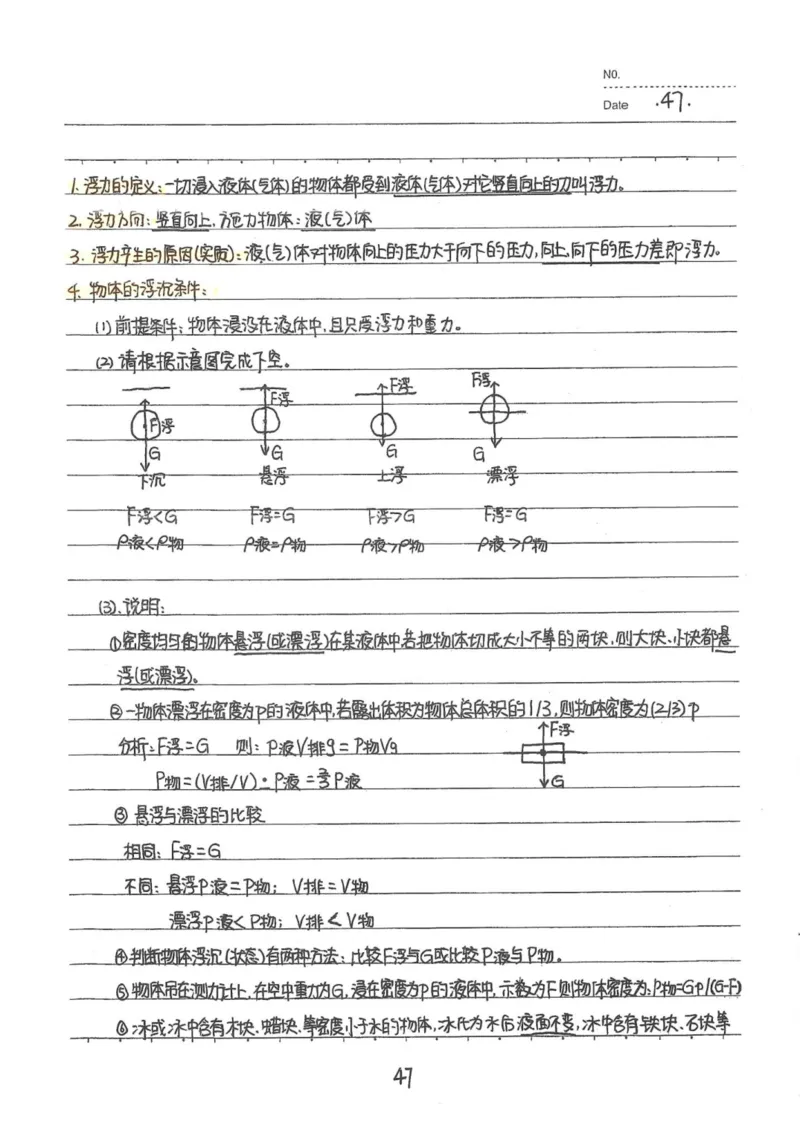 NO.
Date .47.
1.浮力的定义:一切浸入液体(气体)的物体都受到液体(气体)对它竖直向上的力叫浮力。
2.浮力方向:竖直向上,施力物体:液(气)体
3.浮力产生的原因(实质):液(气)体对物体向上的压力大于向下的压力,向上、向下的压力差即浮力。
4.物体的浮沉条件:
(1)前提条件:物体浸没在液体中,且只受浮力和重力。
(2)请根据示意图完成下空。
F浮 F浮 F浮 F浮
G G G G
下沉 悬浮 上浮 漂浮
F浮<G F浮=G F浮>G F浮=G
ρ液<ρ物 ρ液=ρ物 ρ液>ρ物 ρ液>ρ物
(3)、说明:
①密度均匀的物体悬浮(或漂浮)在某液体中若把物体切成大小不等的两块,则大块、小块都悬
浮(或漂浮)。
②一物体漂浮在密度为ρ的液体中,若露出体积为物体总体积的1/3,则物体密度为(2/3)ρ
分析:F浮=G 则:ρ液V排g=ρ物Vg
F浮
G
ρ物=(V排/V)·ρ液=⅔ρ液
③悬浮与漂浮的比较
相同:F浮=G
不同:悬浮ρ液=ρ物; V排=V物
漂浮ρ液<ρ物; V排<V物
④判断物体浮沉(状态)有两种方法:比较F浮与G或比较ρ液与ρ物。
⑤物体吊在测力计上,在空中重力为G,浸在密度为ρ的液体中,示数为F则物体密度为:ρ物=Gρ/(G-F)
⑥冰或冰中含有木块、蜡块、等密度小于水的物体,冰化为水后液面不变,冰中含有铁块、石块等
47